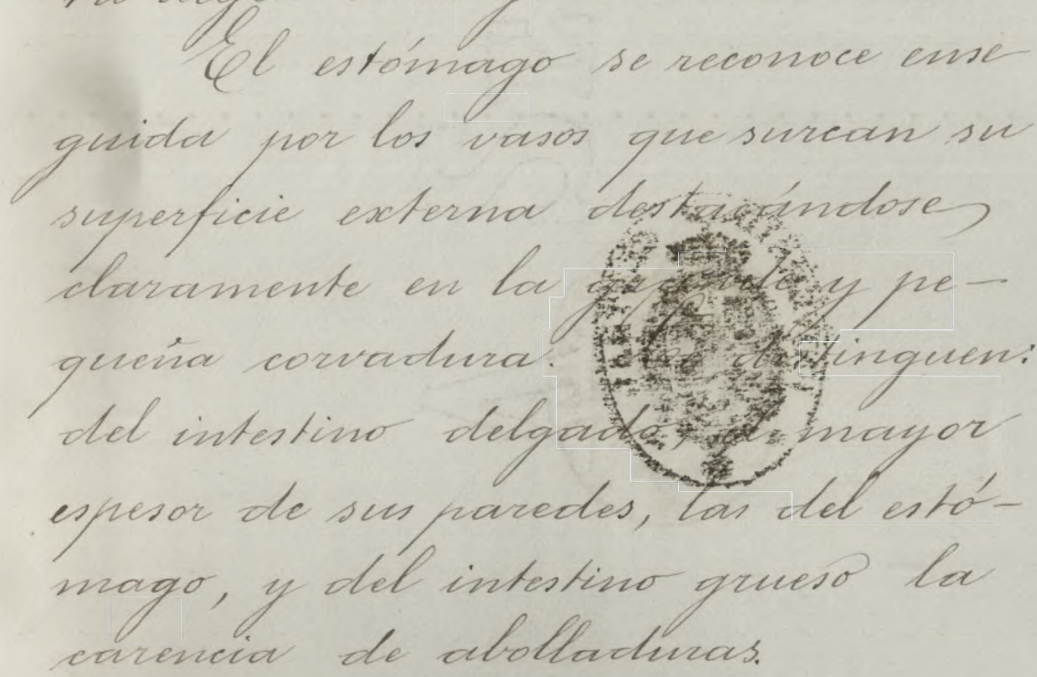 El estómago se reconoce ense
guida por los vasos que surcan su
superficie externa destacándose
claramente en la grande y pe-
queña corvadura. distinguen:
del intestino delgado, mayor
espesor de sus paredes, las del estó-
mago, y del intestino grueso la
carencia de abolladuras.